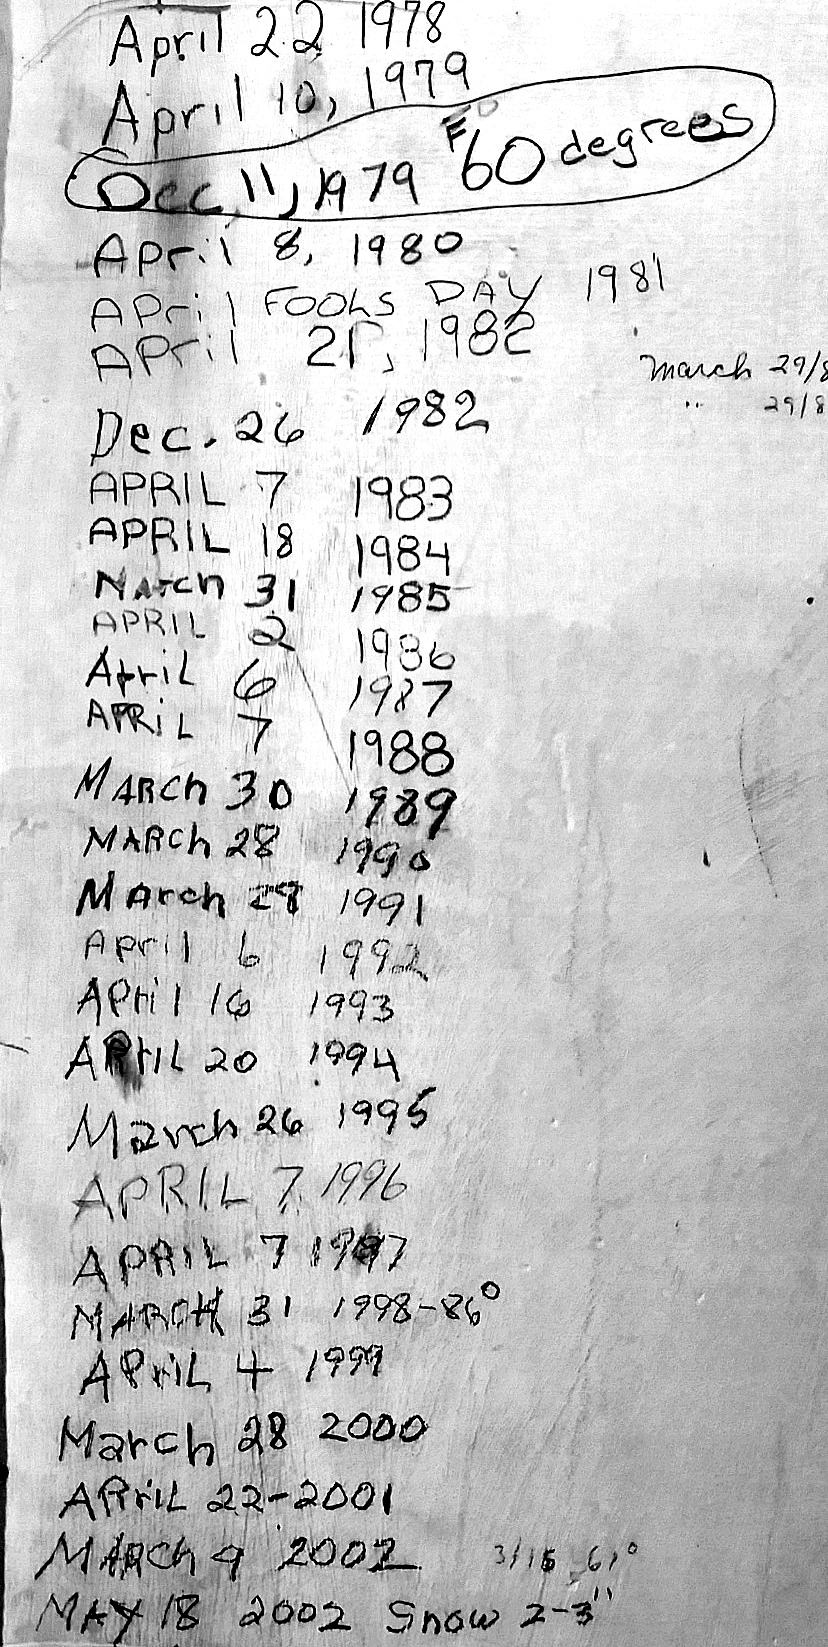 April 22 1978
April 10, 1979
Dec 11, 1979 F 60 degrees
April 8, 1980
April FOOLS DAY 1981
April 21, 1982
march 29/8
" 29/8
Dec. 26 1982
APRIL 7 1983
APRIL 18 1984
March 31 1985
APRIL 2 1986
April 6 1987
APRiL 7 1988
MARCh 30 1989
MARCh 28 1990
March 1991
April 6 1992
April 16 1993
APRIL 20 1994
March 26 1995
APRIL 7 1996
APRIL 7 1997
MARCH 31 1998-86°
APRiL 4 1999
March 28 2000
APRiL 22-2001
MARCh 9 2002 3/15 61°
MAY 18 2002 Snow 2-3"